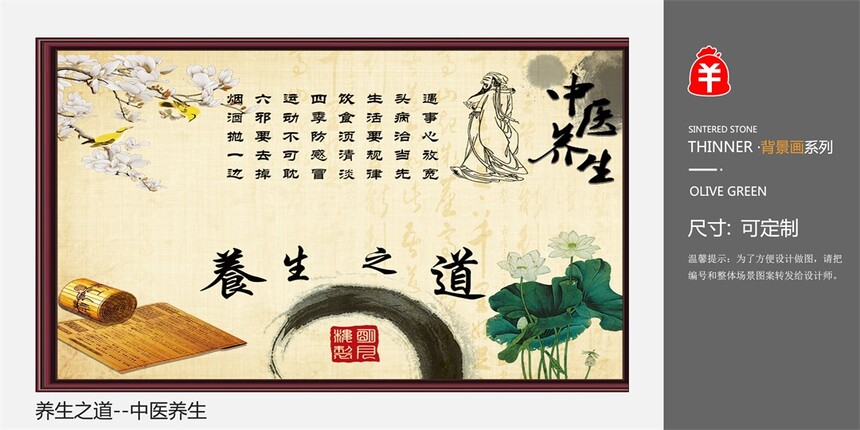 中医
养生
遇事心放宽
头病治当先
生活要规律
饮食须清淡
四季防感冒
运动不可耽
六邪要去掉
烟酒抛一边
養生之道
养生之道--中医养生
SINTERED STONE
THINNER ·背景画系列
OLIVE GREEN
尺寸: 可定制
温馨提示：为了方便设计做图，请把
编号和整体场景图案转发给设计师。